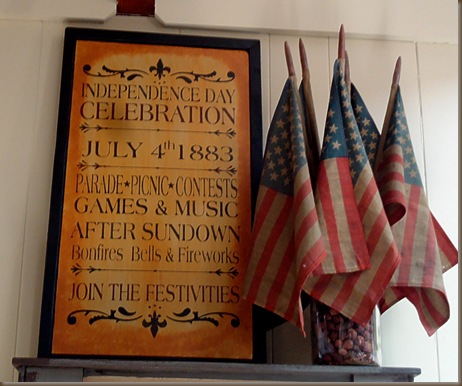 INDEPENDENCE DAY
CELEBRATION
JULY 4th 1883
PARADE★PICNIC★CONTESTS
GAMES & MUSIC
AFTER SUNDOWN
Bonfires Bells & Fireworks
JOIN THE FESTIVITIES